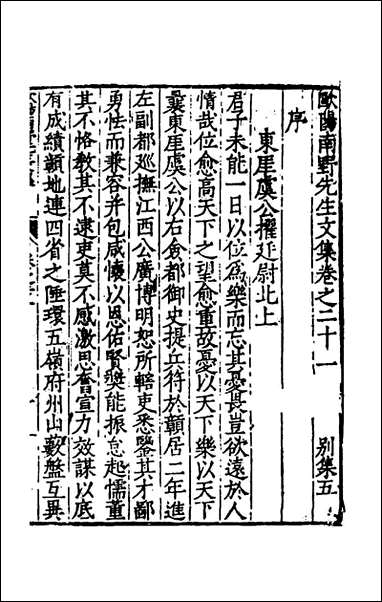 歐陽南野先生文集卷之二十一　別集五
序
東厓虞公擢廷尉北上
君子未能一日以位為樂而忘其憂畏豈欲遠於人
情哉位愈高天下之望愈重故憂以天下樂以天下
襄東厓虞公以右僉都御史提兵符於贛居二年進
左副都廵撫江西公廣博明恕所轄吏悉鑒其才鄙
勇怯而兼容并包咸懷以恩佑賢奬能振怠起懦董
其不恪教其不逮吏莫不感激思奮宣力效謀以底
有成績顓地連四省之陲環五嶺府州山藪盤互異